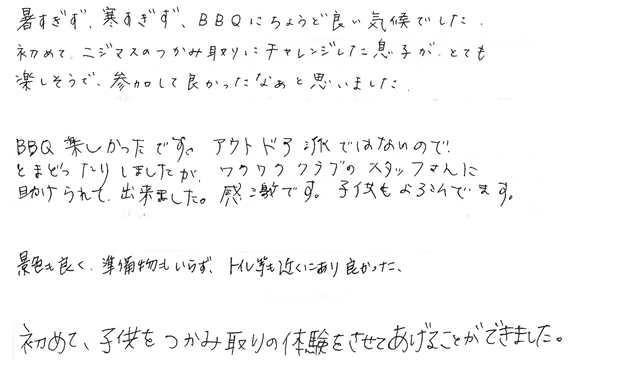 暑すぎず、寒すぎず、BBQにちょうど良い気候でした.
初めて、ニジマスのつかみ取りにチャレンジした息子が、とても
楽しそうで、参加して良かったなぁと思いました.
BBQ 楽しかったです。アウトドア派ではないので、
とまどったりしましたが、ワクワククラブのスタッフさんに
助けられて、出来ました。感激です。子供もよろこんでます。
景色も良く、準備物もいらず、トイレ等も近くにあり良かった、
初めて、子供をつかみ取りの体験をさせてあげることができました。